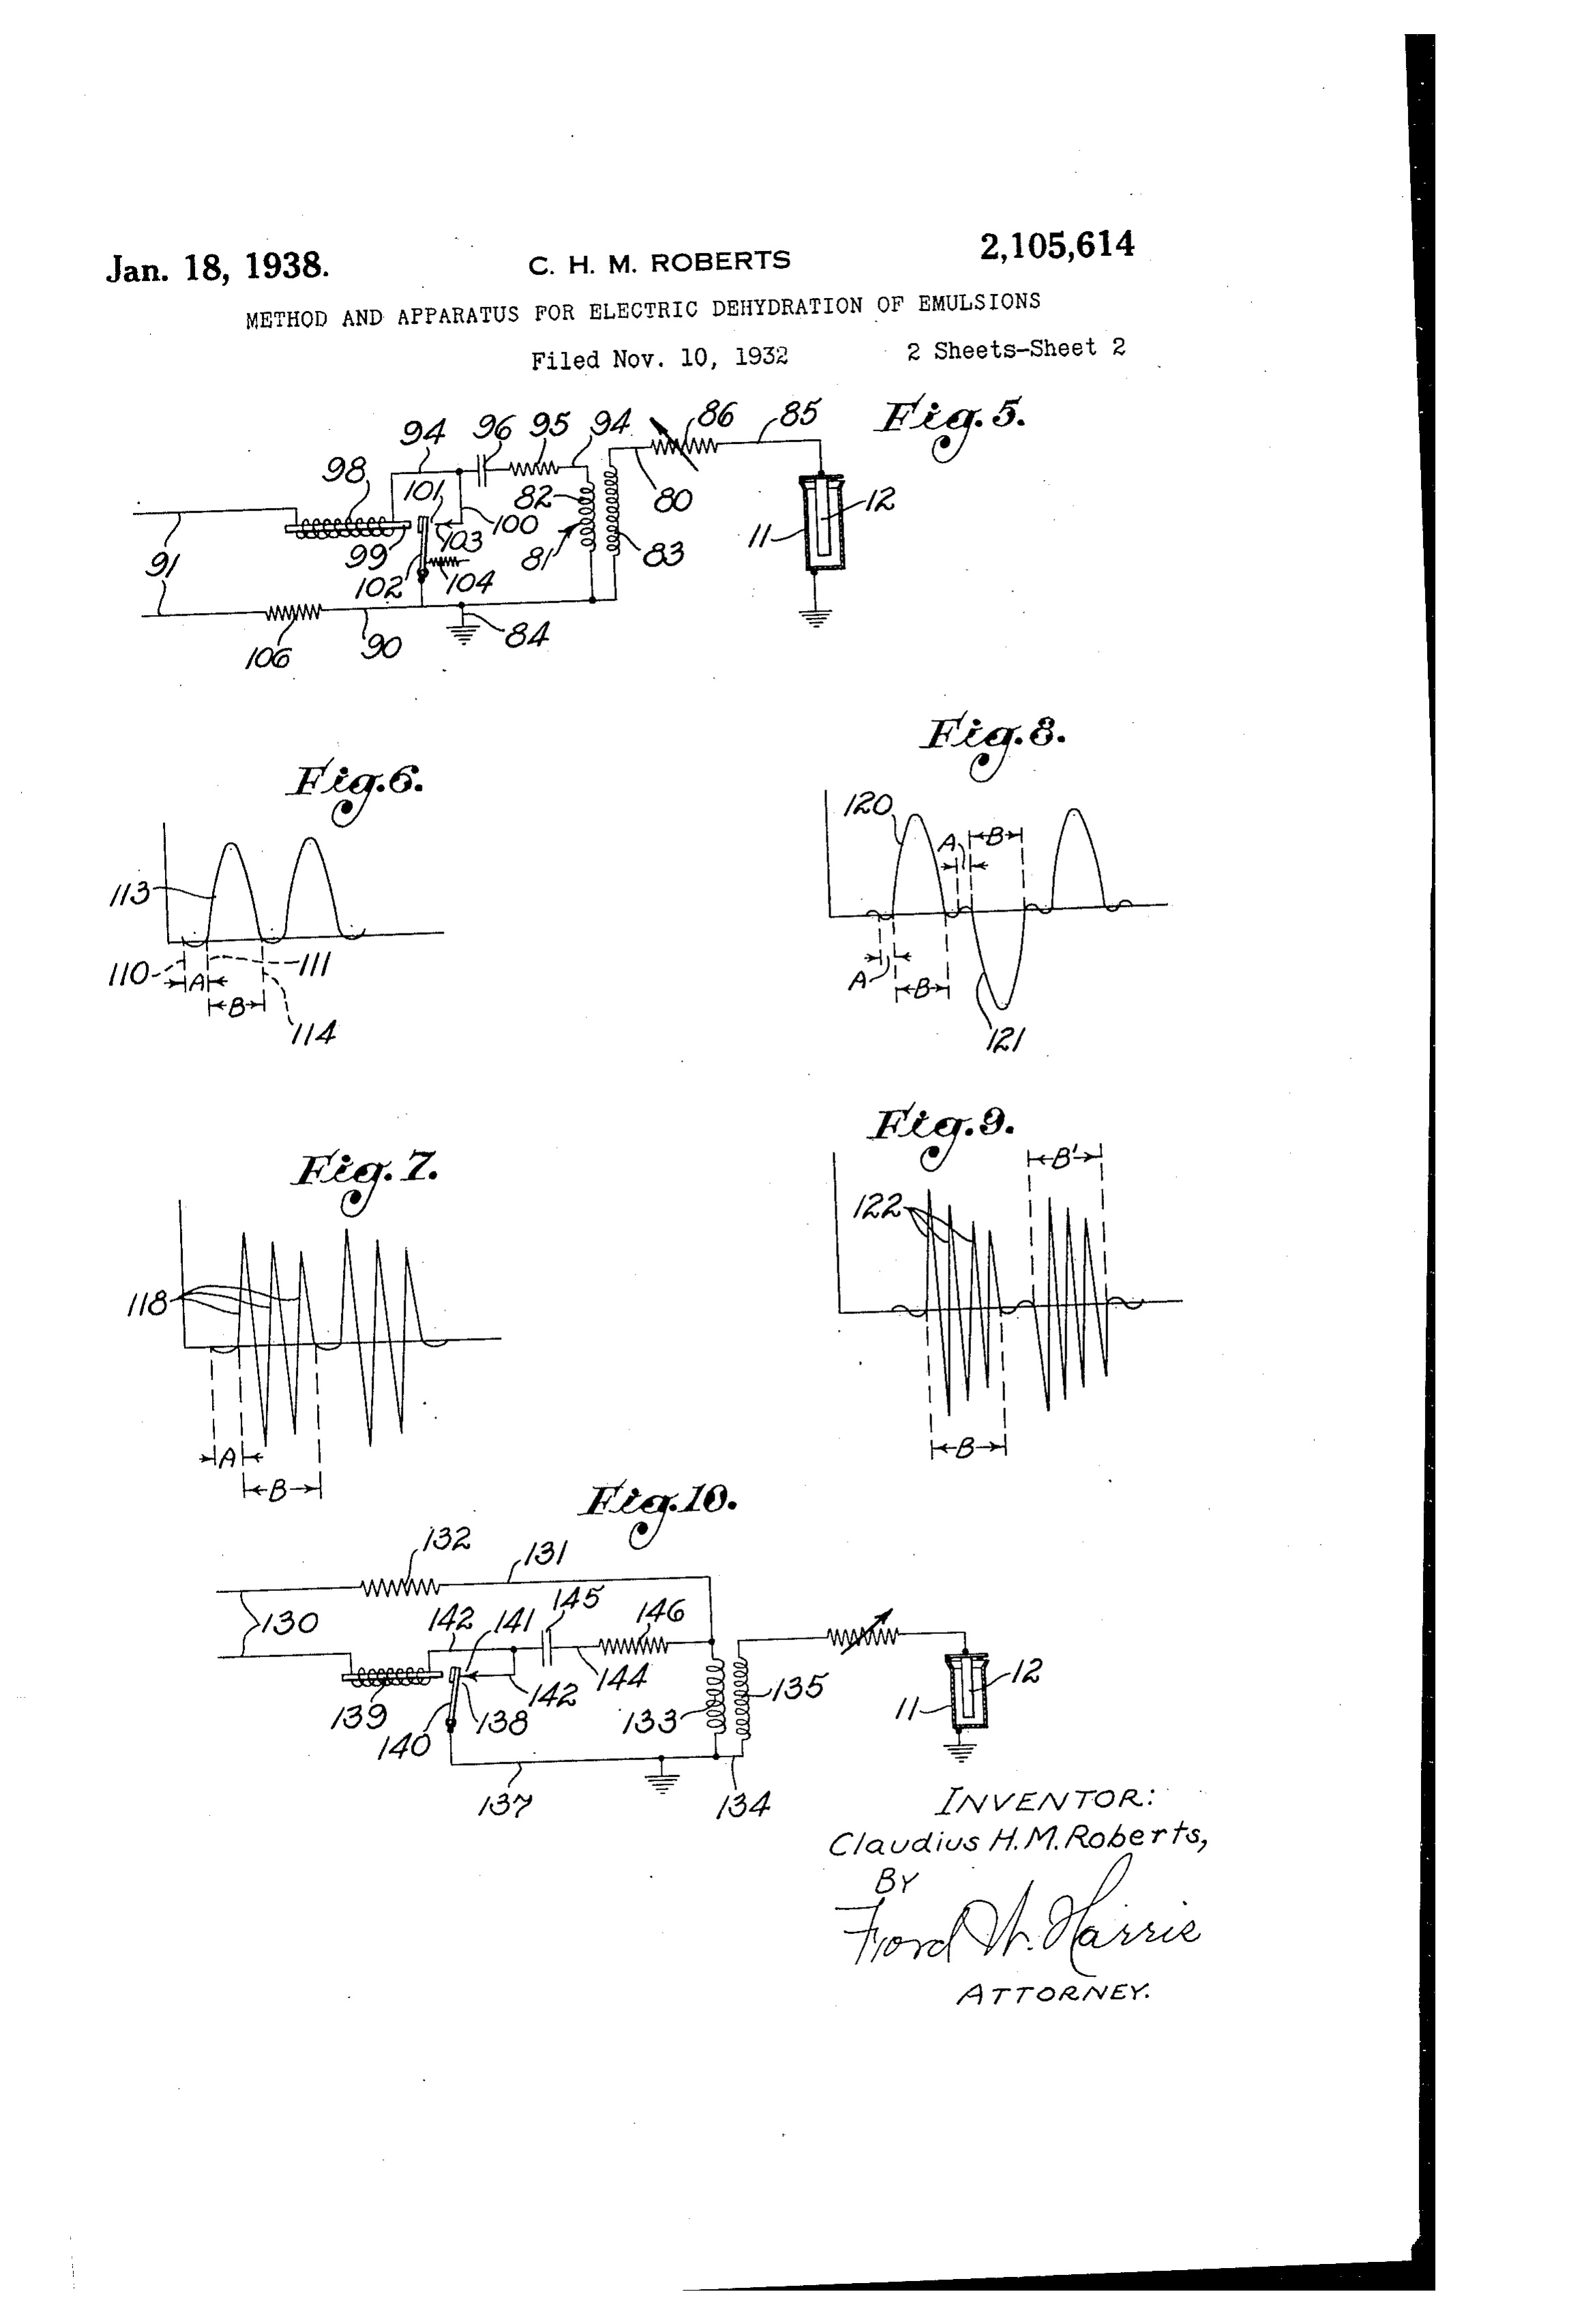 Jan. 18, 1938. C. H. M. ROBERTS 2,105,614
METHOD AND APPARATUS FOR ELECTRIC DEHYDRATION OF EMULSIONS
Filed Nov. 10, 1932 2 Sheets-Sheet 2
Fig. 5.
94 96 95 94 86 85
98 101 82 100 80 12
99 103 81 83 11
91 102 104
106 90 84
Fig. 6.
113
110 A 111
B
114
Fig. 8.
120 A B
A B
121
Fig. 7.
118
A
B
Fig. 9.
B'
122
B
Fig. 10.
132 131
130 142 141 145 146
139 138 142 144 133 135 11 12
140
137 134
INVENTOR:
Claudius H. M. Roberts,
BY
Ford W. Harris
ATTORNEY.